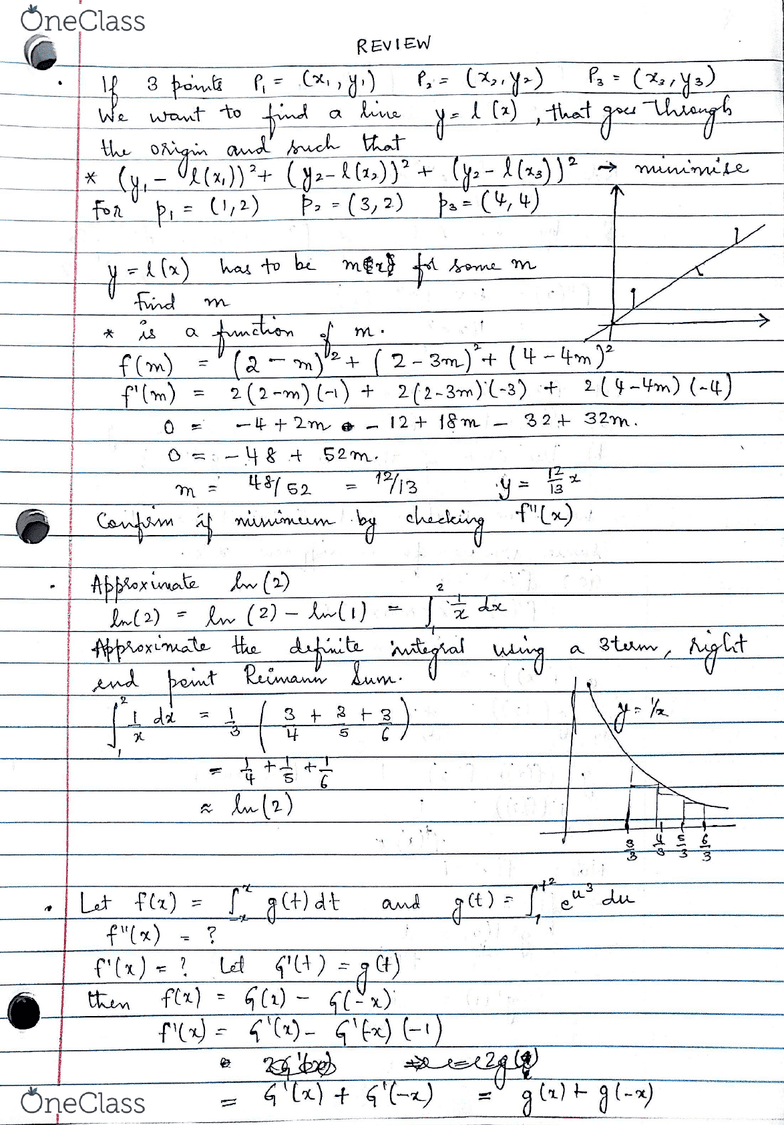 OneClass
REVIEW
. If 3 points P₁ = (x₁, y₁) P₂ = (x₂, y₂) P₃ = (x₃, y₃)
We want to find a line y = l(x), that goes through
the origin and such that
* (y₁ - l(x₁))² + (y₂ - l(x₂))² + (y₂ - l(x₃))² → minimise
For p₁ = (1,2) p₂ = (3,2) p₃ = (4,4)
y = l(x) has to be m(x) for some m
Find m
* is a function of m.
f(m) = (2 - m)² + (2 - 3m)² + (4 - 4m)²
f'(m) = 2(2-m)(-1) + 2(2-3m)(-3) + 2(4-4m)(-4)
0 = -4 + 2m - 12 + 18m - 32 + 32m.
0 = -48 + 52m.
m = 48/52 = 12/13 y = 12/13 x
Confirm if minimum by checking f"(x)
. Approximate ln(2)
ln(2) = ln(2) - ln(1) = ∫₁² 1/x dx
Approximate the definite integral using a 3 term, right
end point Reimann Sum.
∫₁² 1/x dx = 1/3 (3/4 + 3/5 + 3/6)
y = 1/x
= 1/4 + 1/5 + 1/6
≈ ln(2)
3/3 4/3 5/3 6/3
. Let f(x) = ∫₋ₓˣ g(t) dt and g(t) = ∫₁^t² e^u³ du
f"(x) = ?
f'(x) = ? Let G'(t) = g(t)
then f(x) = G(x) - G(-x)
f'(x) = G'(x) - G'(-x) (-1)
= G'(x) + G'(-x) = g(x) + g(-x)
OneClass